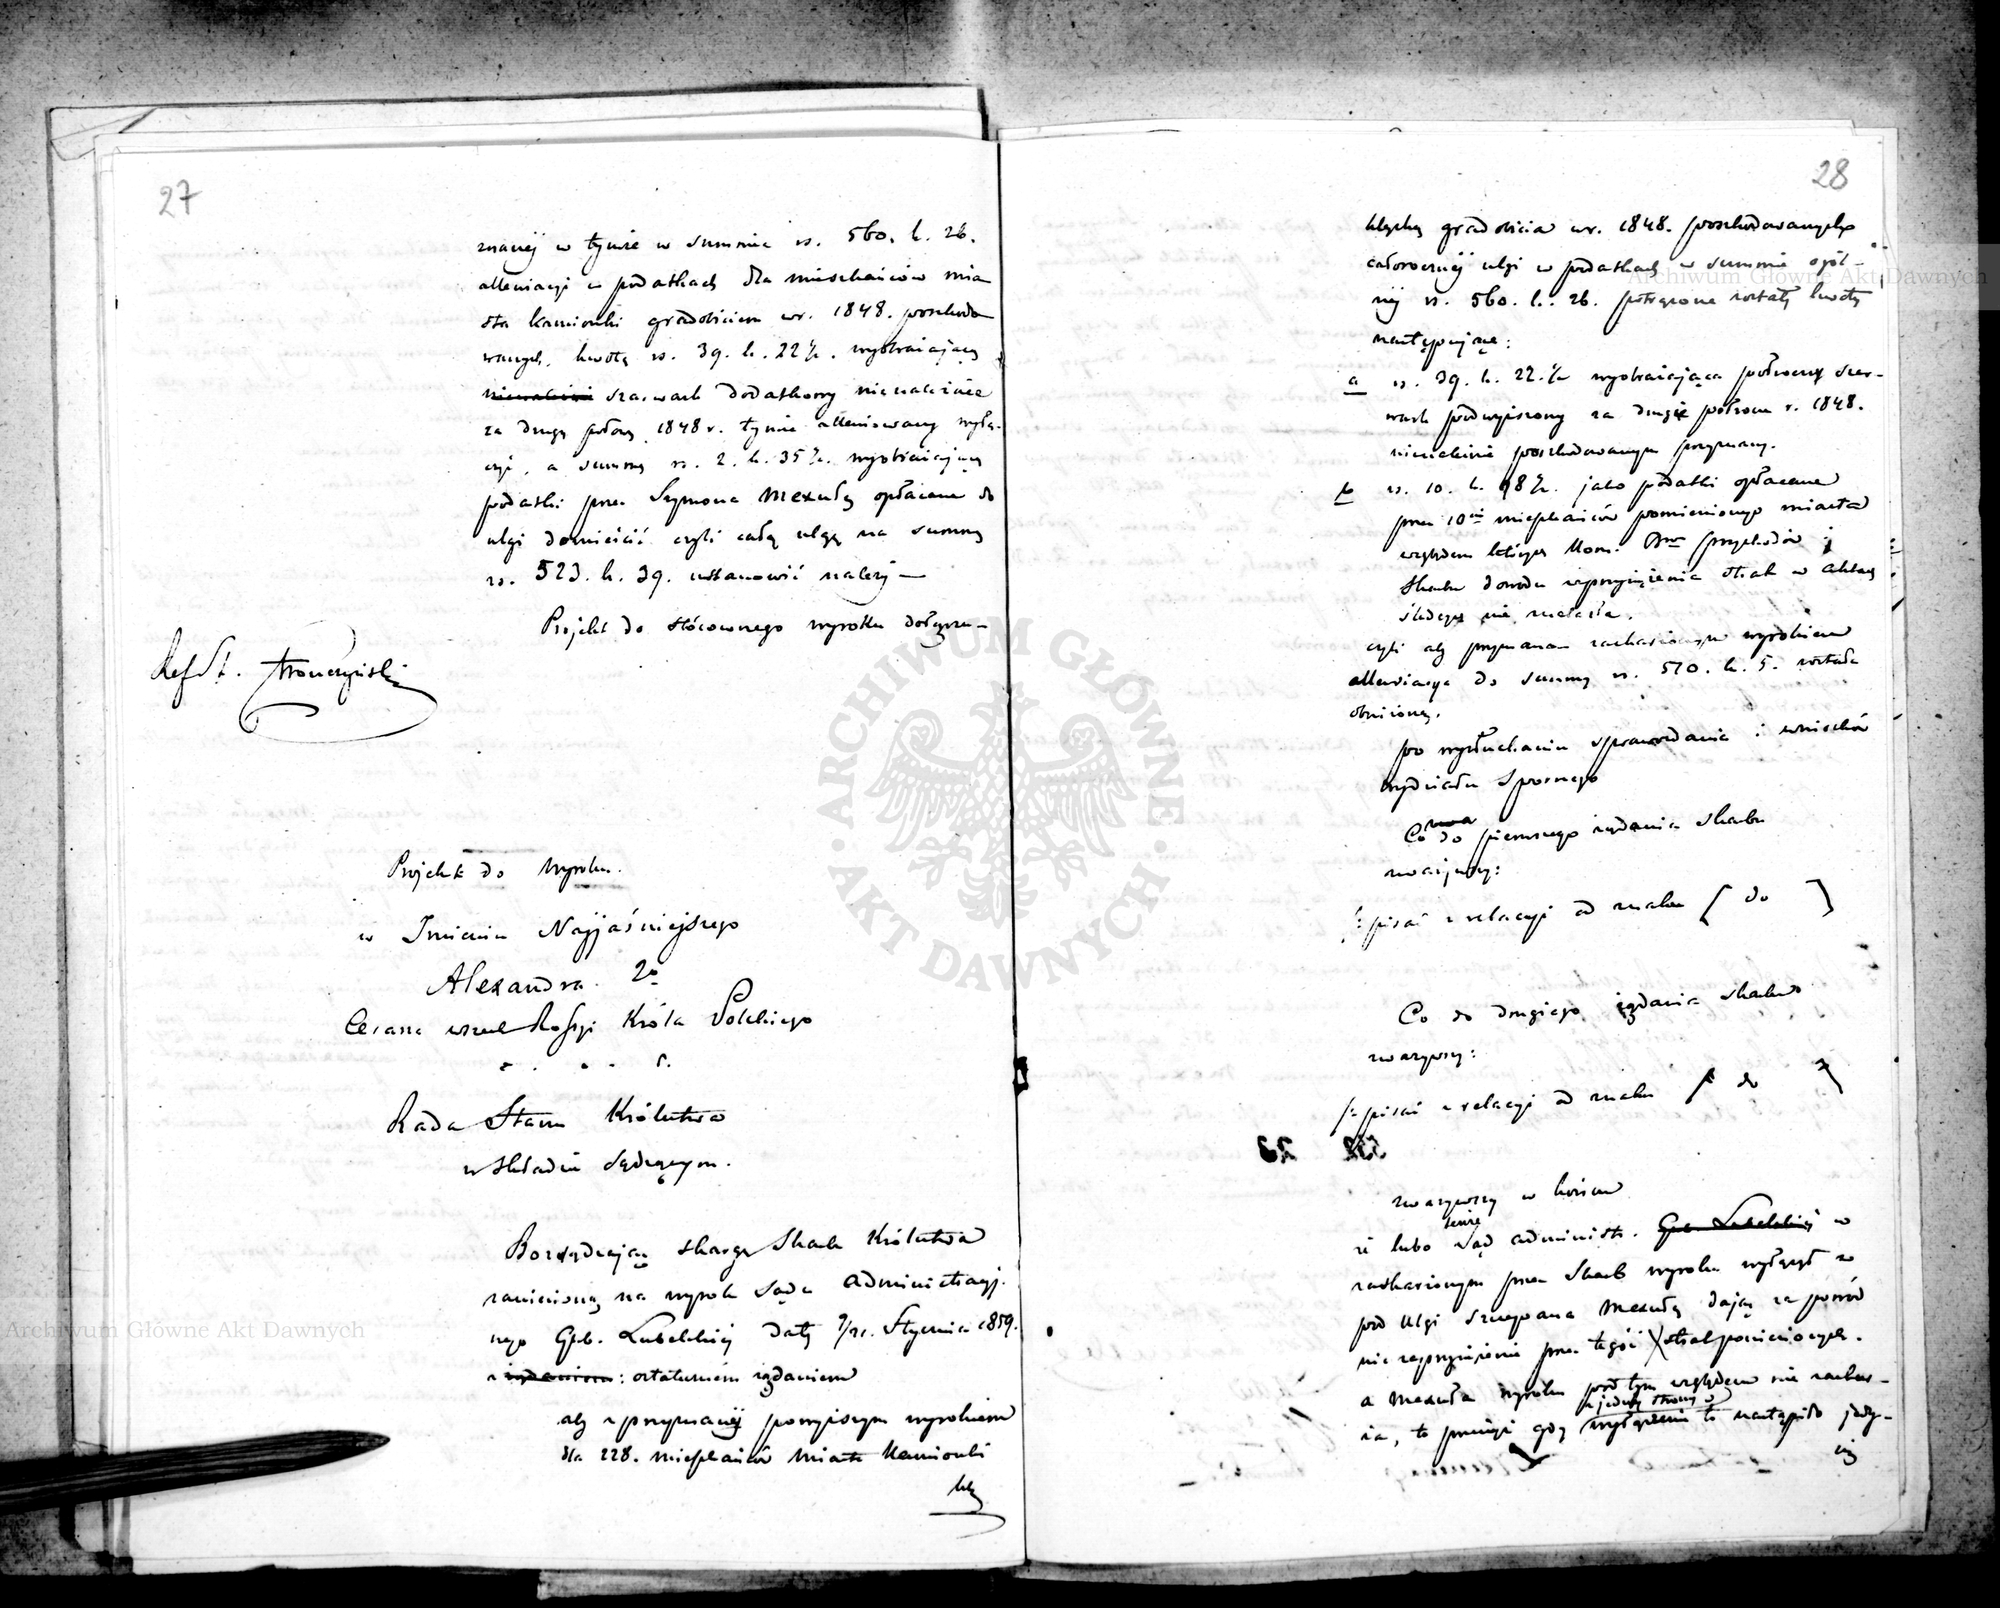 27
znanej w tymże w summie rs. 560. k. 26.
alleviacyi w podatkach dla mieszkańców mia
sta Kamionki gradobiciem w r. 1848. poszkodo
wanych, kwotę rs. 39. k. 22½. wyobrażającą
szarwark dodatkowy nienależnie
za drugą połowę 1848 r. tymże alleniowany wyłą-
czyć, a summę rs. 2. k. 35½. wyobrażającą
podatki przez Szymona Mexułę opłacane do
ulgi domieścić czyli całą ulgę na summę
rs. 523. k. 39. ustanowić należy—
Projekt do stósownego wyroku dołącza—
Ref. St. Stronczyński
Projekt do Wyroku.
w Imieniu Najjaśniejszego
Alexandra 2o
Cesarza wszech Rossyi Króla Polskiego
Rada Stanu Królestwa
w Składzie Sądzącym.
Rozsądzając skargę Skarbu Królestwa
zaniesioną na wyrok Sądu Administracyj.
nego Gub. Lubelskiej daty 9/21. Stycznia 1859.
z żądaniem: ostatecznem żądaniem
aby z przyznanej powyższym wyrokiem
dla 228. mieszkańców miasta Kamionki
klę
28
klęską gradobicia w r. 1848. poszkodowanych
całorocznej ulgi w podatkach w summie ogól-
nej rs. 560. k. 26. potrącone zostały kwoty
następujące:
a rs. 39. k. 22.½ wyobrażająca półroczny szar-
wark podwyższony za drugie półrocze r. 1848.
nienależnie poszkodowanym przyznany.
b rs. 10. k. 98½. jako podatki opłacane
przez 10ciu mieszkańców pomienionego miasta
względem których Kom. Rzą Przychodów i
Skarbu dowodu zaprzysiężenia strat w aktach
śledczych nie znalazła.
czyli aby przyznana zaskarżonym wyrokiem
alleviacya do summy rs. 510. k. 5. została
obniżoną.
po wysłuchaniu sprawozdania i wniosków
Wydziału Spornego
Co do pierwszego żądania Skarbu
zważywszy:
/: pisać z relacyi od znaku [ do ]
Co do drugiego żądania Skarbu
zważywszy:
/: pisać z relacyi od znaku do
zważywszy w końcu
że lubo tenże Sąd administr. Gub. Lubelskiej w
zaskarżonym przez Skarb wyroku wyłączył z
pod ulgi Szczepana Mexułę dając za powód
nie zaprzysiężenie przez tegóż strat poniesionych.
a Mexuła wyroku pod tym względem nie zaskar-
ża, to przecież gdy z jednej strony wyłączenie to nastąpiło jedy-
nie